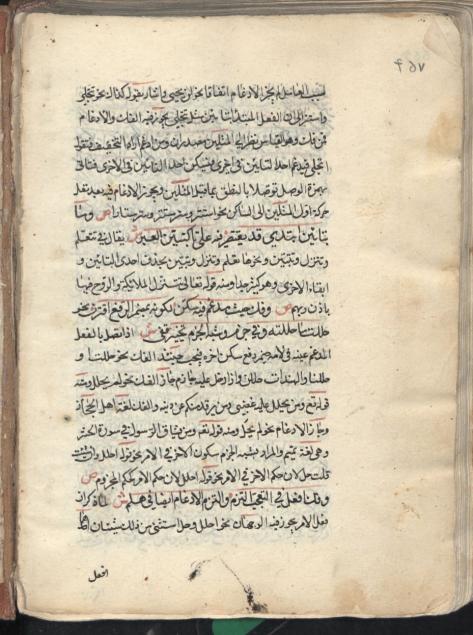 بسبب العامل لم يجز الادغام اتفاقا نحو لن يحيي واشار بقوله كذاك نحو تتجلى
واستتر الى ان الفعل المبتدا بتاءين مثل تتجلى يجوز فيه الفك والادغام
فمن فك وهو القياس نظر الى ان المثلين مصدران ومن ادغم اراد التخفيف فيقول
اتجلى فيدغم احدا التاءين في الاخرى فيسكن احدا التاءين في الاخرى فتاتي
بهمزة الوصل توصلا بالنطق بما قبل المثلين ويجوز الادغام فيه بعد نقل
حركة اول المثلين الى الساكن نحو استتر وستر يستر ستارا ص وما
بتائين ابتدى قد يقتصر فيه على تا كتبين العبر ش يقال في تتعلم
وتتنزل وتتبين ونحوها تعلم وتنزل وتبين بحذف احدى التائين و
ابقاء الاخرى وهو كثير جدا ومنه قوله تعالى تنزل الملائكة والروح فيها
باذن ربهم ص وفك حيث مدغم فيه سكن لكونه بمضمر الرفع اقترن نحو
حللت ما حللته وفي جزم وشبه الجزم تخيير قفي ش اذا اتصل بالفعل
المدغم عينه في لامه ضمير رفع سكن اخره فيجب حينئذ الفك نحو حللت و
حللنا والهندات حللن واذا دخل عليه جازم جاز الفك نحو لم يحلل ومنه
قوله تع ومن يحلل عليه غضبي ومن يرتدد منكم عن دينه والفك لغة اهل الحجاز
وجاز الادغام نحو لم يحل ومنه قوله تع ومن يشاق الرسول في سورة الحشر
وهي لغة تميم والمراد بشبه الجزم سكون الاخر في الامر نحو قوله احلل وان شئت
قلت حل لان حكم الاخر في الامر نحو قوله احلل لان حكم الامر كحكم المجزوم ص
وفك افعل في التعجب التزم والتزم الادغام ايضا في هلم ش لما ذكر ان
فعل الامر يجوز فيه الوجهان نحو احلل وحل استثنى من ذلك شيئان احدهما
افعل